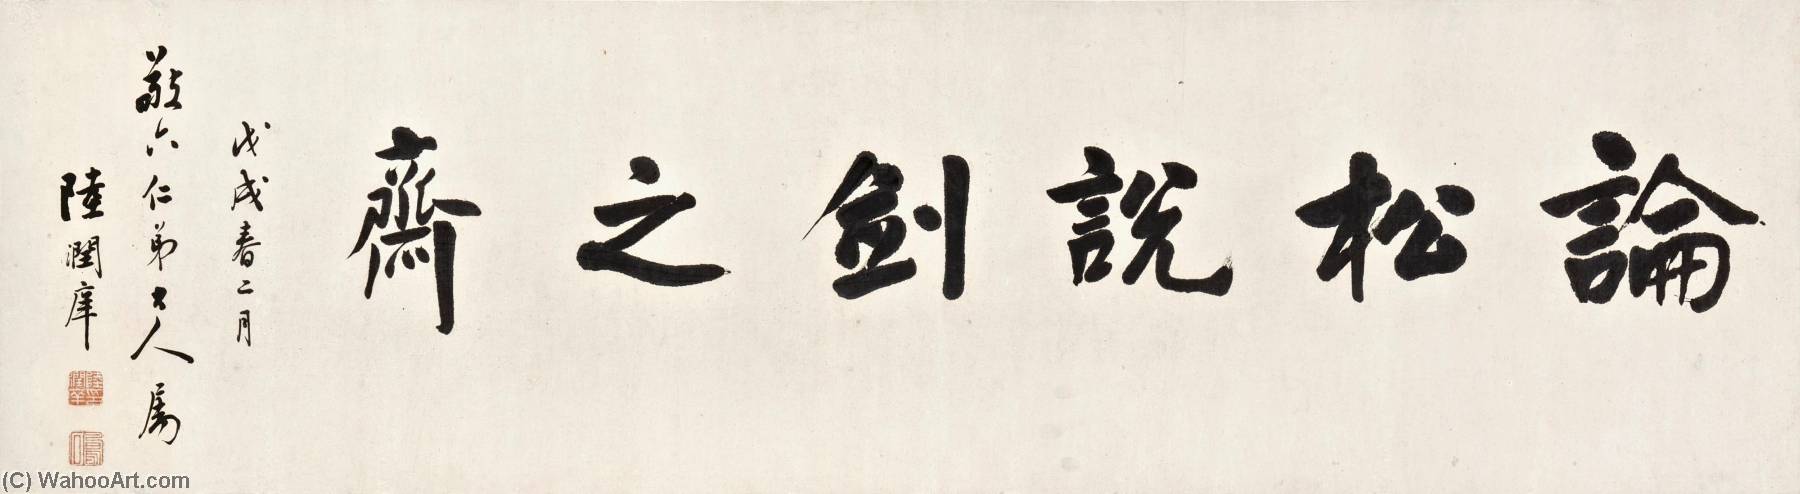 論松說劍之齋
戊戌春二月
敬六仁弟大人屬
陸潤庠
(C) WahooArt.com